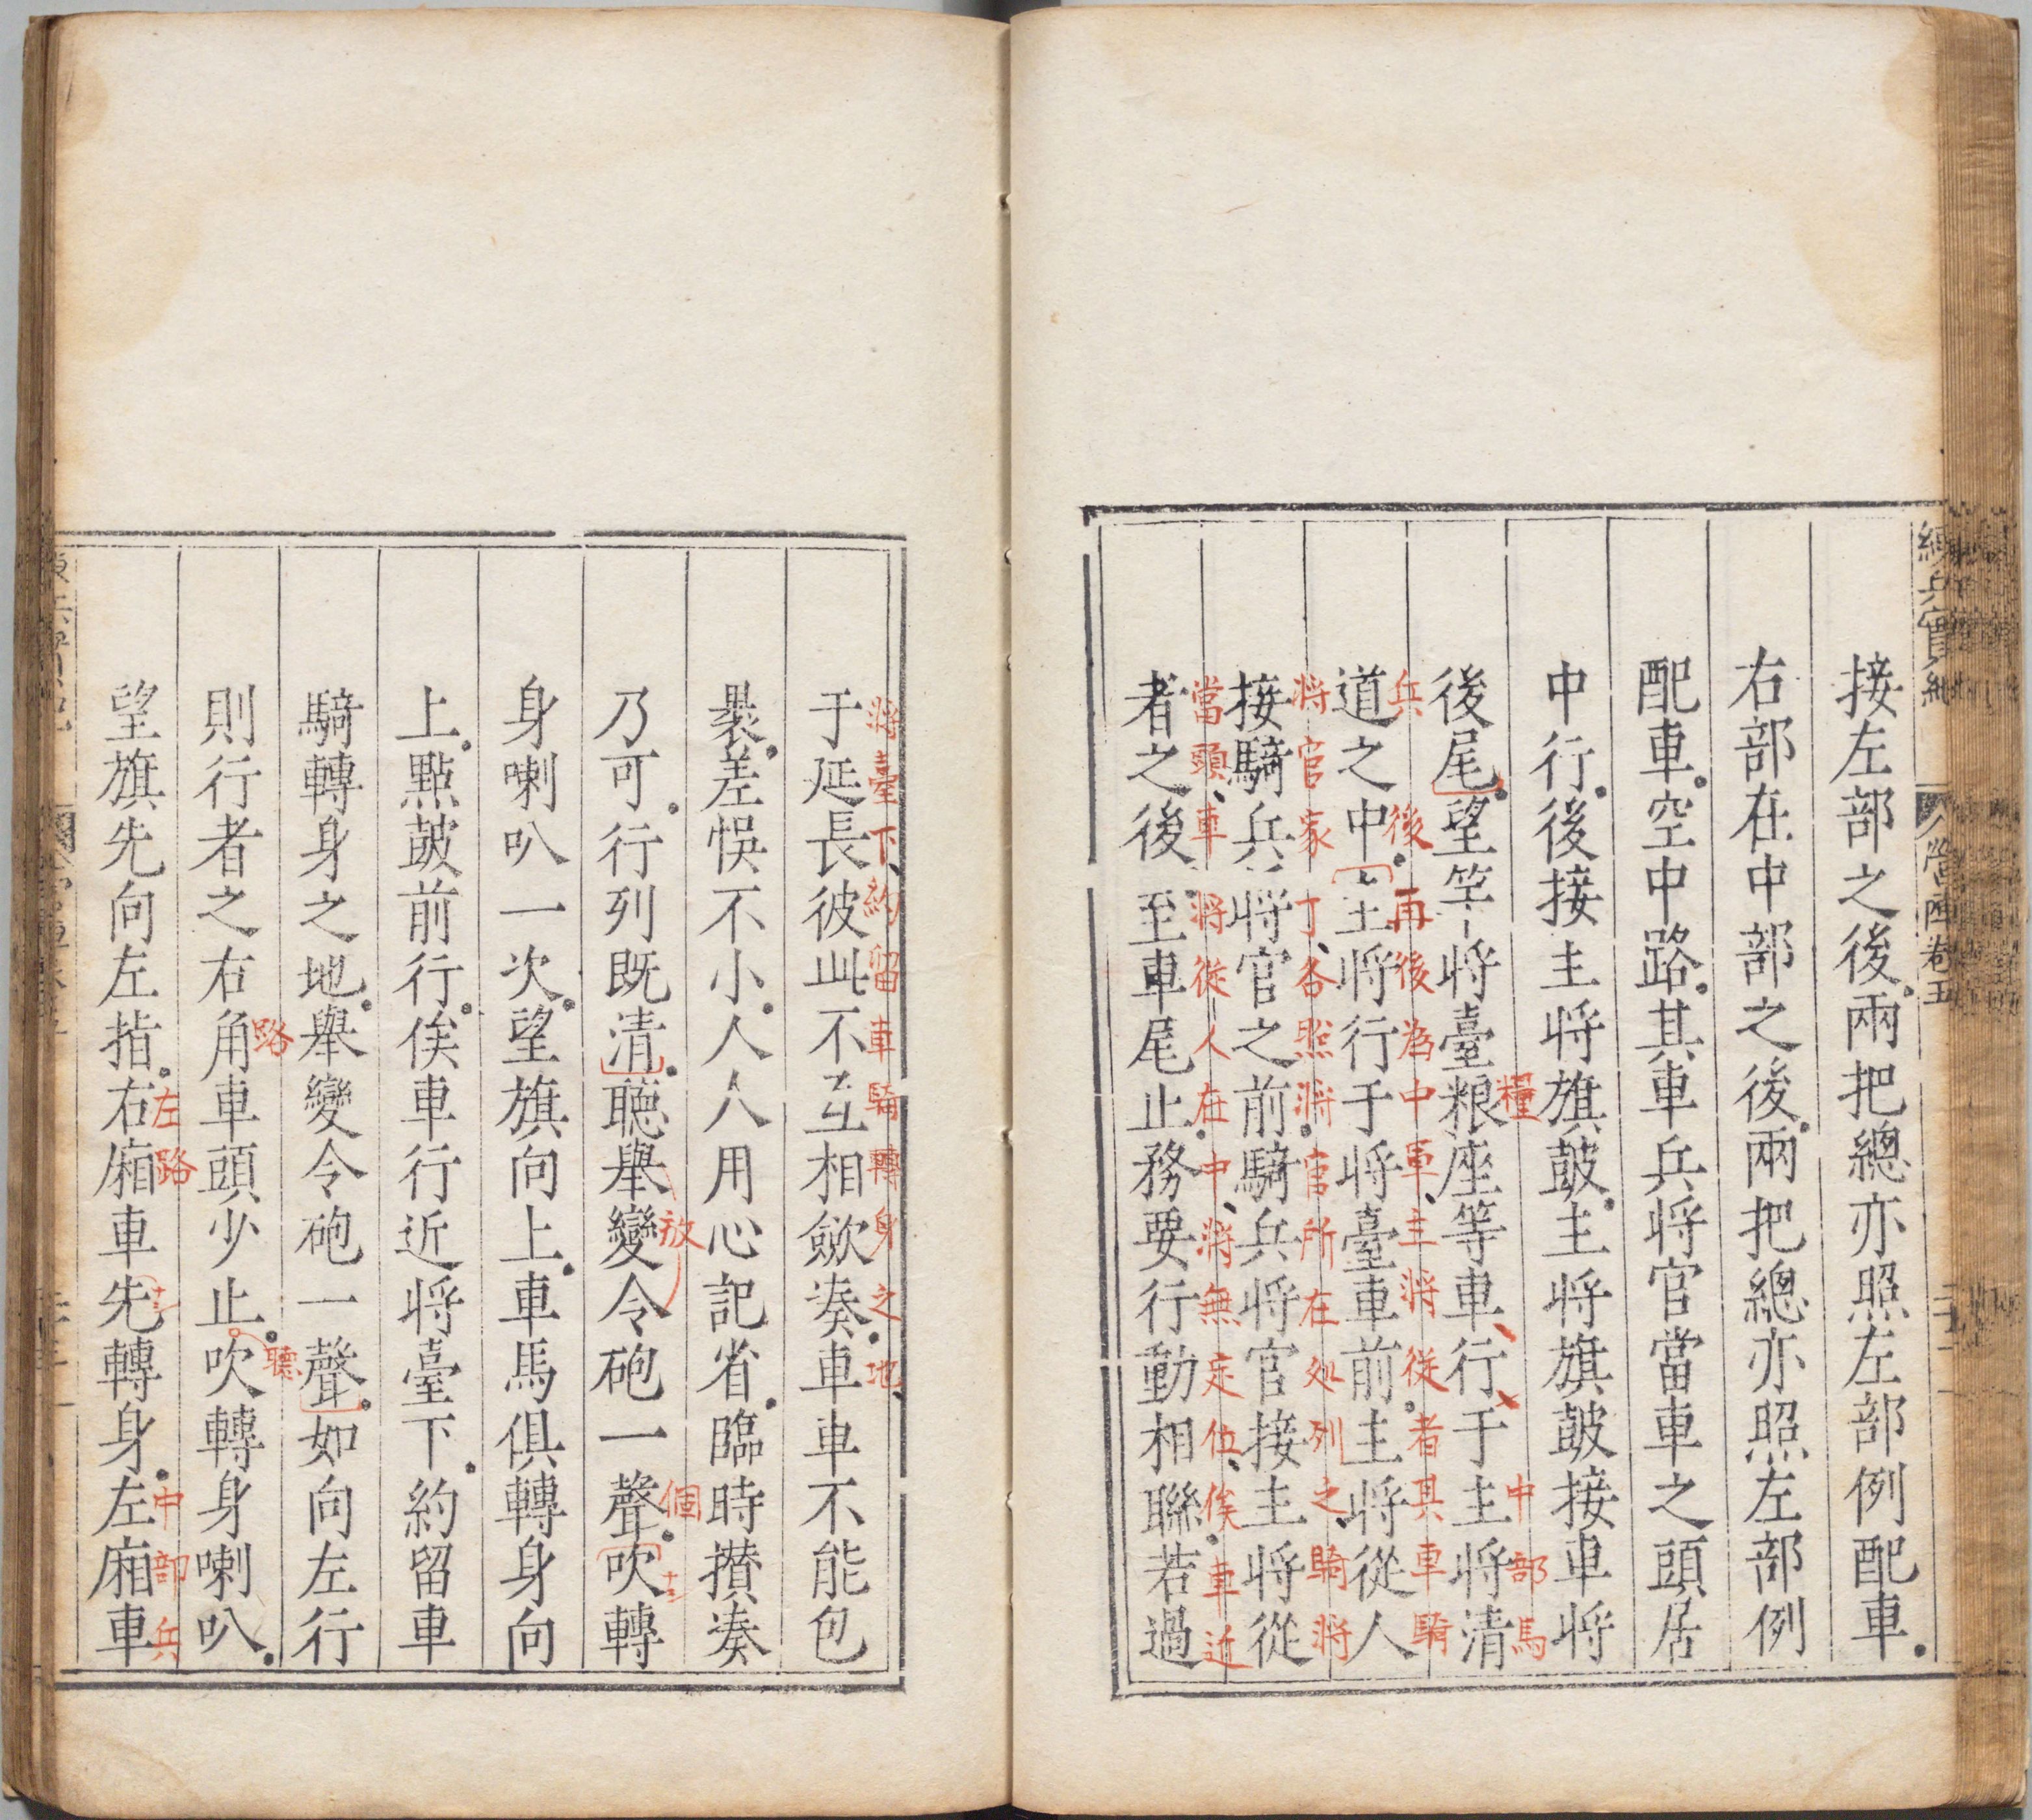 練兵實紀
營陣卷五
接左部之後兩把總亦照左部例配車
右部在中部之後兩把總亦照左部例
配車空中路其車兵将官當車之頭居
中行後接主将旗鼓主将旗鼓接車将
糧 中部馬
後尾望竿将臺粮座等車行于主将清
兵後再後為中軍主將從者具車騎
道之中主将行于将臺車前主将從人
将官家丁各照將官所在处列之騎將
接騎兵将官之前騎兵将官接主将從
當頭車將從人在中將無定位俟車近
者之後至車尾止務要行動相聯若過
將臺下約留車騎轉身之地
于延長彼此不互相歛湊車車不能包
褁差悞不小人人用心記省臨時攅湊
放 個
乃可行列既清聽舉變令砲一聲吹轉
身喇叭一次望旗向上車馬俱轉身向
上點鼓前行俟車行近将臺下約留車
騎轉身之地舉變令砲一聲如向左行
路 聽
則行者之右角車頭少止吹轉身喇叭
左路 中部兵
望旗先向左指右廂車先轉身左廂車